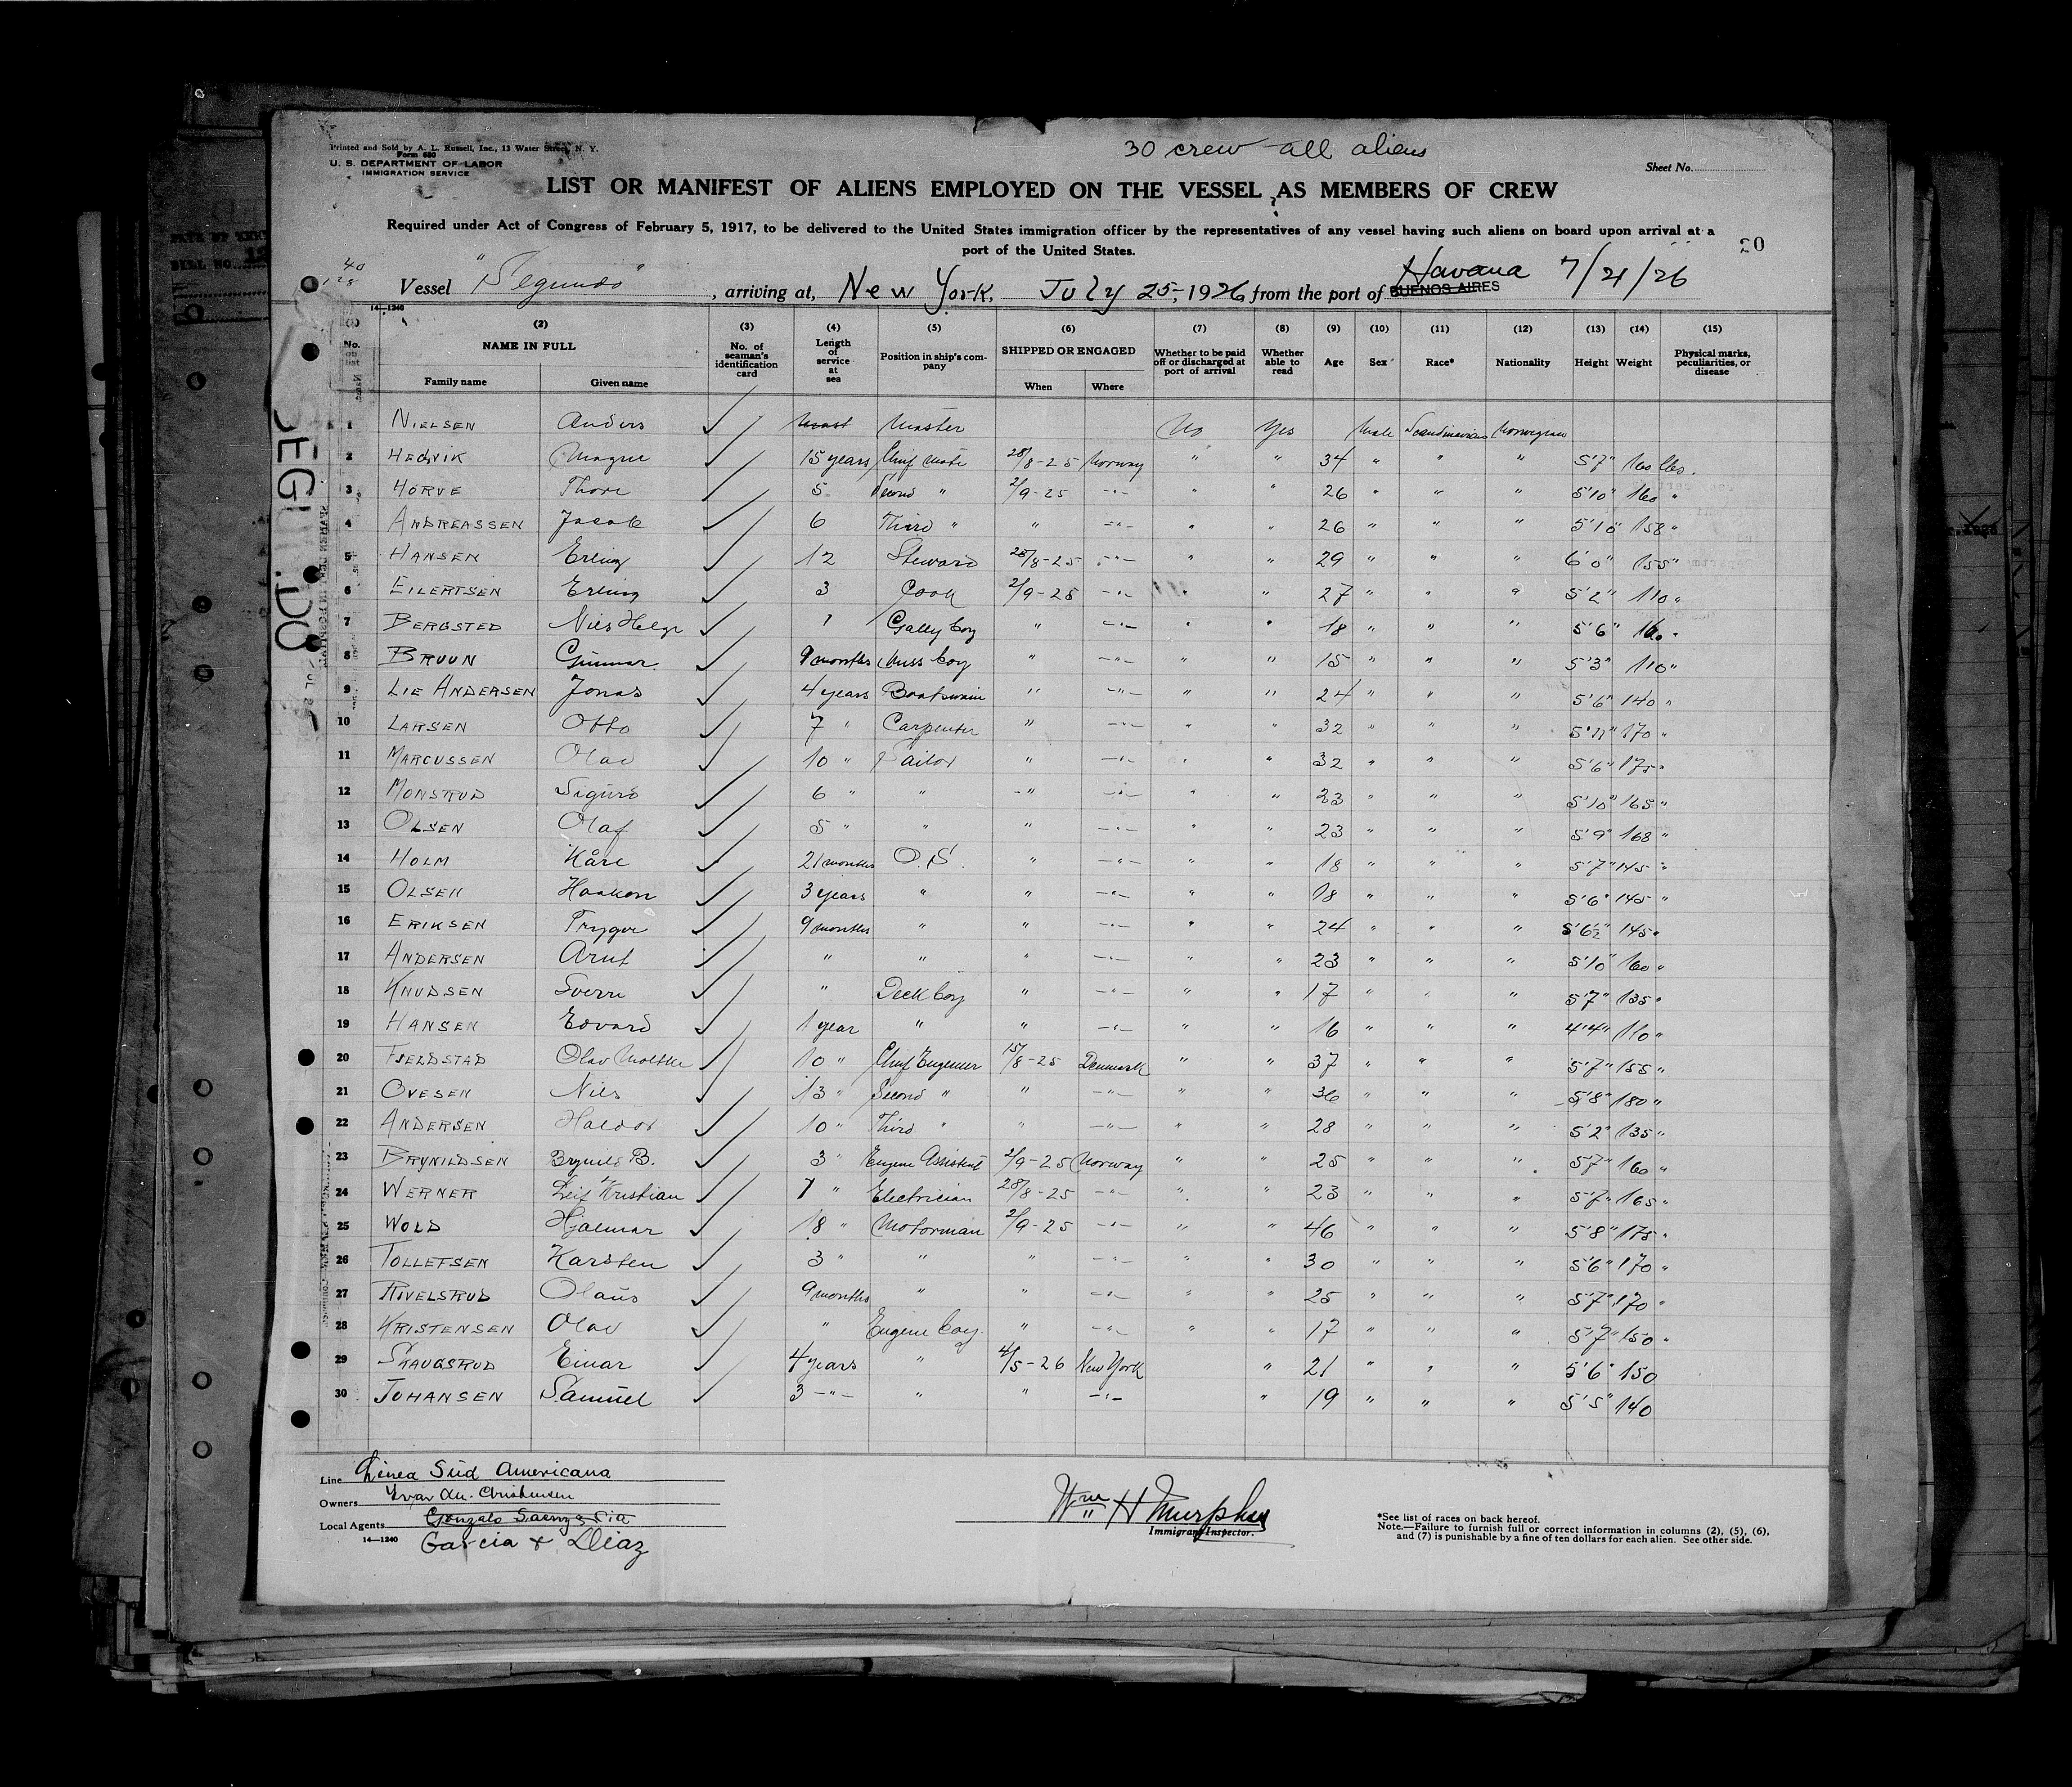 30 crew all aliens
Printed and Sold by A. L. Russell, Inc., 13 Water Street, N. Y.
Form 680
U. S. DEPARTMENT OF LABOR
IMMIGRATION SERVICE
Sheet No.
LIST OR MANIFEST OF ALIENS EMPLOYED ON THE VESSEL AS MEMBERS OF CREW
Required under Act of Congress of February 5, 1917, to be delivered to the United States immigration officer by the representatives of any vessel having such aliens on board upon arrival at a
port of the United States.
20
Vessel "Segundo", arriving at, New York, July 25, 1926 from the port of BUENOS AIRES Havana 7/21/26
14—1240
(1) (2) (3) (4) (5) (6) (7) (8) (9) (10) (11) (12) (13) (14) (15)
No. on list NAME IN FULL No. of seaman's identification card Length of service at sea Position in ship's company SHIPPED OR ENGAGED Whether to be paid off or discharged at port of arrival Whether able to read Age Sex Race* Nationality Height Weight Physical marks, peculiarities, or disease
Family name Given name When Where
1 NIELSEN Anders ✓ Master No Yes Male Scandinavian Norwegian
2 HEGVIK Magne ✓ 15 years Chief Mate 28/8-25 Norway " " 34 " " " 5'7" 160 lbs.
3 HORVE Thore ✓ 5 Second " 2/9-25 -"- " " 26 " " " 5'10" 160 "
4 ANDREASSEN Jacob ✓ 6 Third " " -"- " " 26 " " " 5'10" 158 "
5 HANSEN Erling ✓ 12 Steward 28/8-25 -"- " " 29 " " " 6'0" 155 "
6 EILERTSEN Erling ✓ 3 Cook 2/9-25 -"- " " 27 " " " 5'2" 110 "
7 BERGSTED Nils Helge ✓ 1 Gally boy " -"- " " 18 " " " 5'6" 160 "
8 BRUUN Gunnar ✓ 9 months Mess boy " -"- " " 15 " " " 5'3" 110 "
9 LIE ANDERSEN Jonas ✓ 4 years Boatswain " -"- " " 24 " " " 5'6" 140 "
10 LARSEN Otto ✓ 7 " Carpenter " -"- " " 32 " " " 5'11" 170 "
11 MARCUSSEN Olav ✓ 10 " Sailor " -"- " " 32 " " " 5'6" 175 "
12 MONSRUD Sigurd ✓ 6 " " -"- -"- " " 23 " " " 5'10" 165 "
13 OLSEN Olaf ✓ 5 " " " -"- " " 23 " " " 5'9" 168 "
14 HOLM Kåre ✓ 21 months O.S. " -"- " " 18 " " " 5'7" 145 "
15 OLSEN Haakon ✓ 3 years " " -"- " " 18 " " " 5'6" 145 "
16 ERIKSEN Trygve ✓ 9 months " " -"- " " 24 " " " 5'6½" 145 "
17 ANDERSEN Arnt ✓ " " " -"- " " 23 " " " 5'10" 160 "
18 KNUDSEN Sverre ✓ " Deck boy " -"- " " 17 " " " 5'7" 135 "
19 HANSEN Edvard ✓ 1 year " " -"- " " 16 " " " 4'4" 110 "
20 FJELDSTAD Olav Moltke ✓ 10 " Chief Engineer 15/8-25 Denmark " " 37 " " " 5'7" 155 "
21 OVESEN Nils ✓ 13 " Second " " -"- " " 36 " " " 5'8" 180 "
22 ANDERSEN Haldor ✓ 10 " Third " " -"- " " 28 " " " 5'2" 135 "
23 BRYNILDSEN Brynild B. ✓ 3 " Engine Assistent 2/9-25 Norway " " 25 " " " 5'7" 160 "
24 WERNER Leif Kristian ✓ 1 " Electrician 28/8-25 -"- " " 23 " " " 5'7" 165 "
25 WOLD Hjalmar ✓ 18 " Motorman 2/9-25 -"- " " 46 " " " 5'8" 175 "
26 TOLLEFSEN Karsten ✓ 3 " " " -"- " " 30 " " " 5'6" 170 "
27 RIVELSRUD Olaus ✓ 9 months " " -"- " " 25 " " " 5'7" 170 "
28 KRISTENSEN Olav ✓ " Engine boy " -"- " " 17 " " " 5'7" 150 "
29 SKAUGSRUD Einar ✓ 4 years " 4/5-26 New York " 21 " " " 5'6" 150
30 JOHANSEN Samuel ✓ 3 -"- " " -"- " 19 " " " 5'5" 140
Line Linea Sud Americana
Owners Ivar An. Christensen
Local Agents Gonzalo Saenz & Cia
Garcia & Diaz
14—1240
Wm H Murphy
Immigrant Inspector.
*See list of races on back hereof.
Note.—Failure to furnish full or correct information in columns (2), (5), (6),
and (7) is punishable by a fine of ten dollars for each alien. See other side.